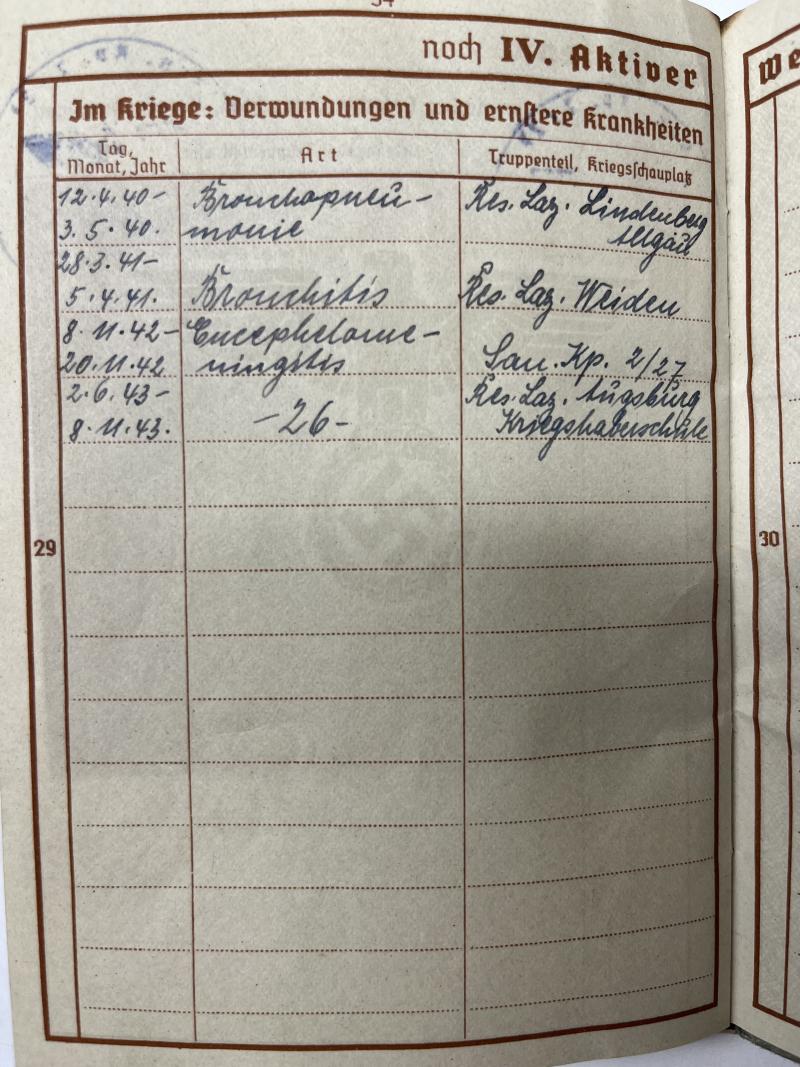 34
noch IV. Aktiver
We
Im Kriege: Verwundungen und ernstere Krankheiten
Tag, Monat, Jahr
Art
Truppenteil, Kriegsschauplatz
12.4.40-
Bronchopneu-
Res. Laz. Lindenberg
3.5.40.
monie
Allgäu
28.3.41-
5.4.41.
Bronchitis
Res. Laz. Weiden
8.11.42-
Encephelome-
20.11.42
ningitis
San. Kp. 2/27
2.6.43-
Res. Laz. Augsburg
8.11.43.
-26-
Kriegshaberschule
29
30